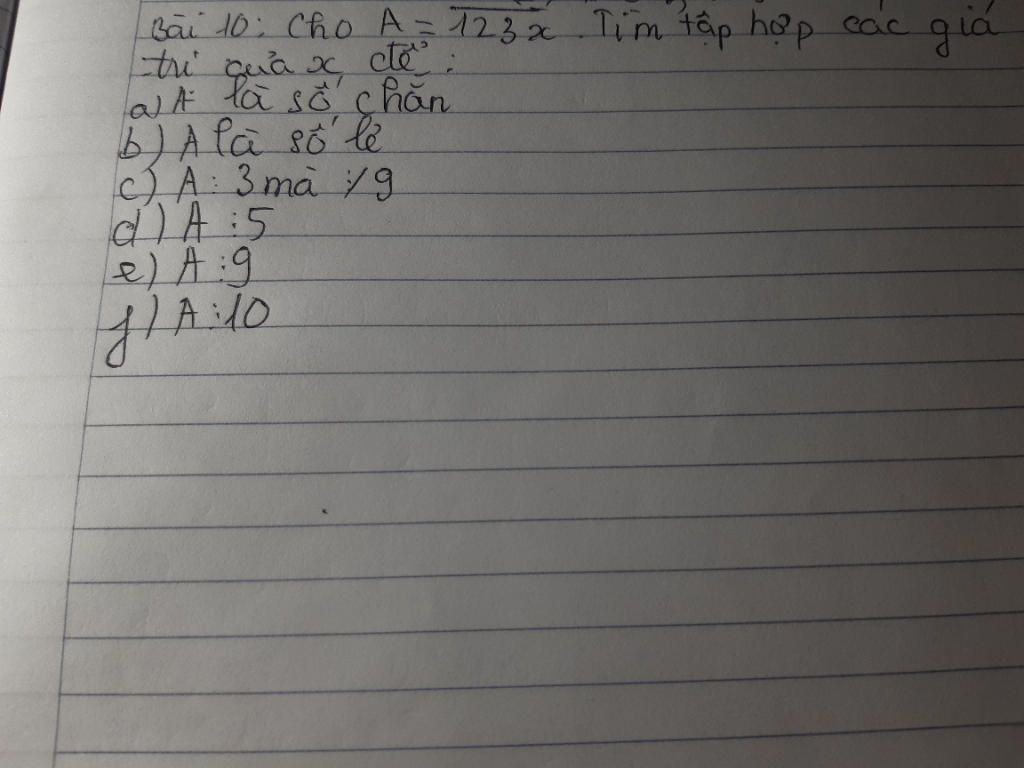 Bài 10: Cho A = 123x. Tìm tập hợp các giá
trị của x, để:
a) A là số chẵn
b) A là số lẻ
c) A ⋮ 3 mà ⋮̸ 9
d) A ⋮ 5
e) A ⋮ 9
f) A ⋮ 10